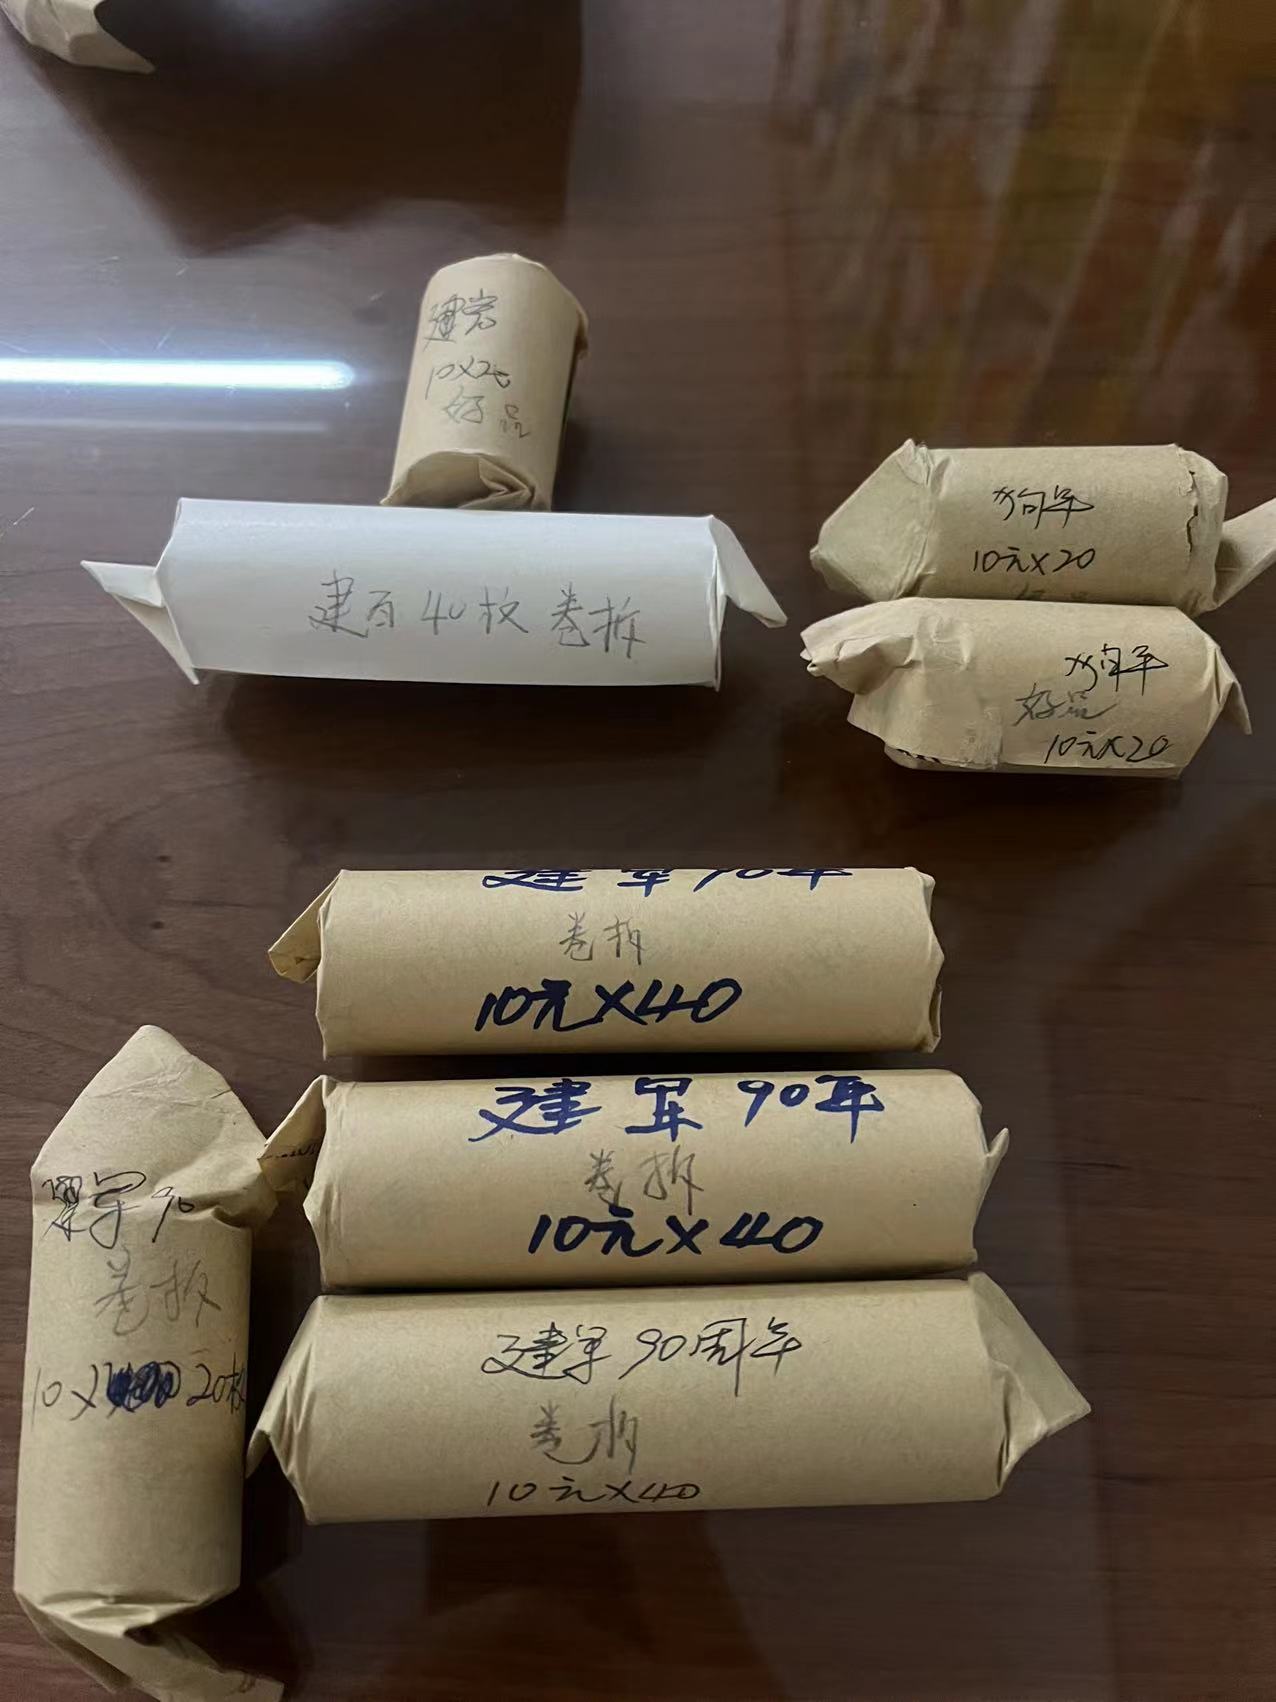 10X20
好品
建百40枚卷拆
狗年
10元X20
狗年
好品
10元X20
建军90年
卷拆
10元X40
建军90年
卷拆
10元X40
建军90
卷拆
20枚
建军90周年
卷拆
10元X40